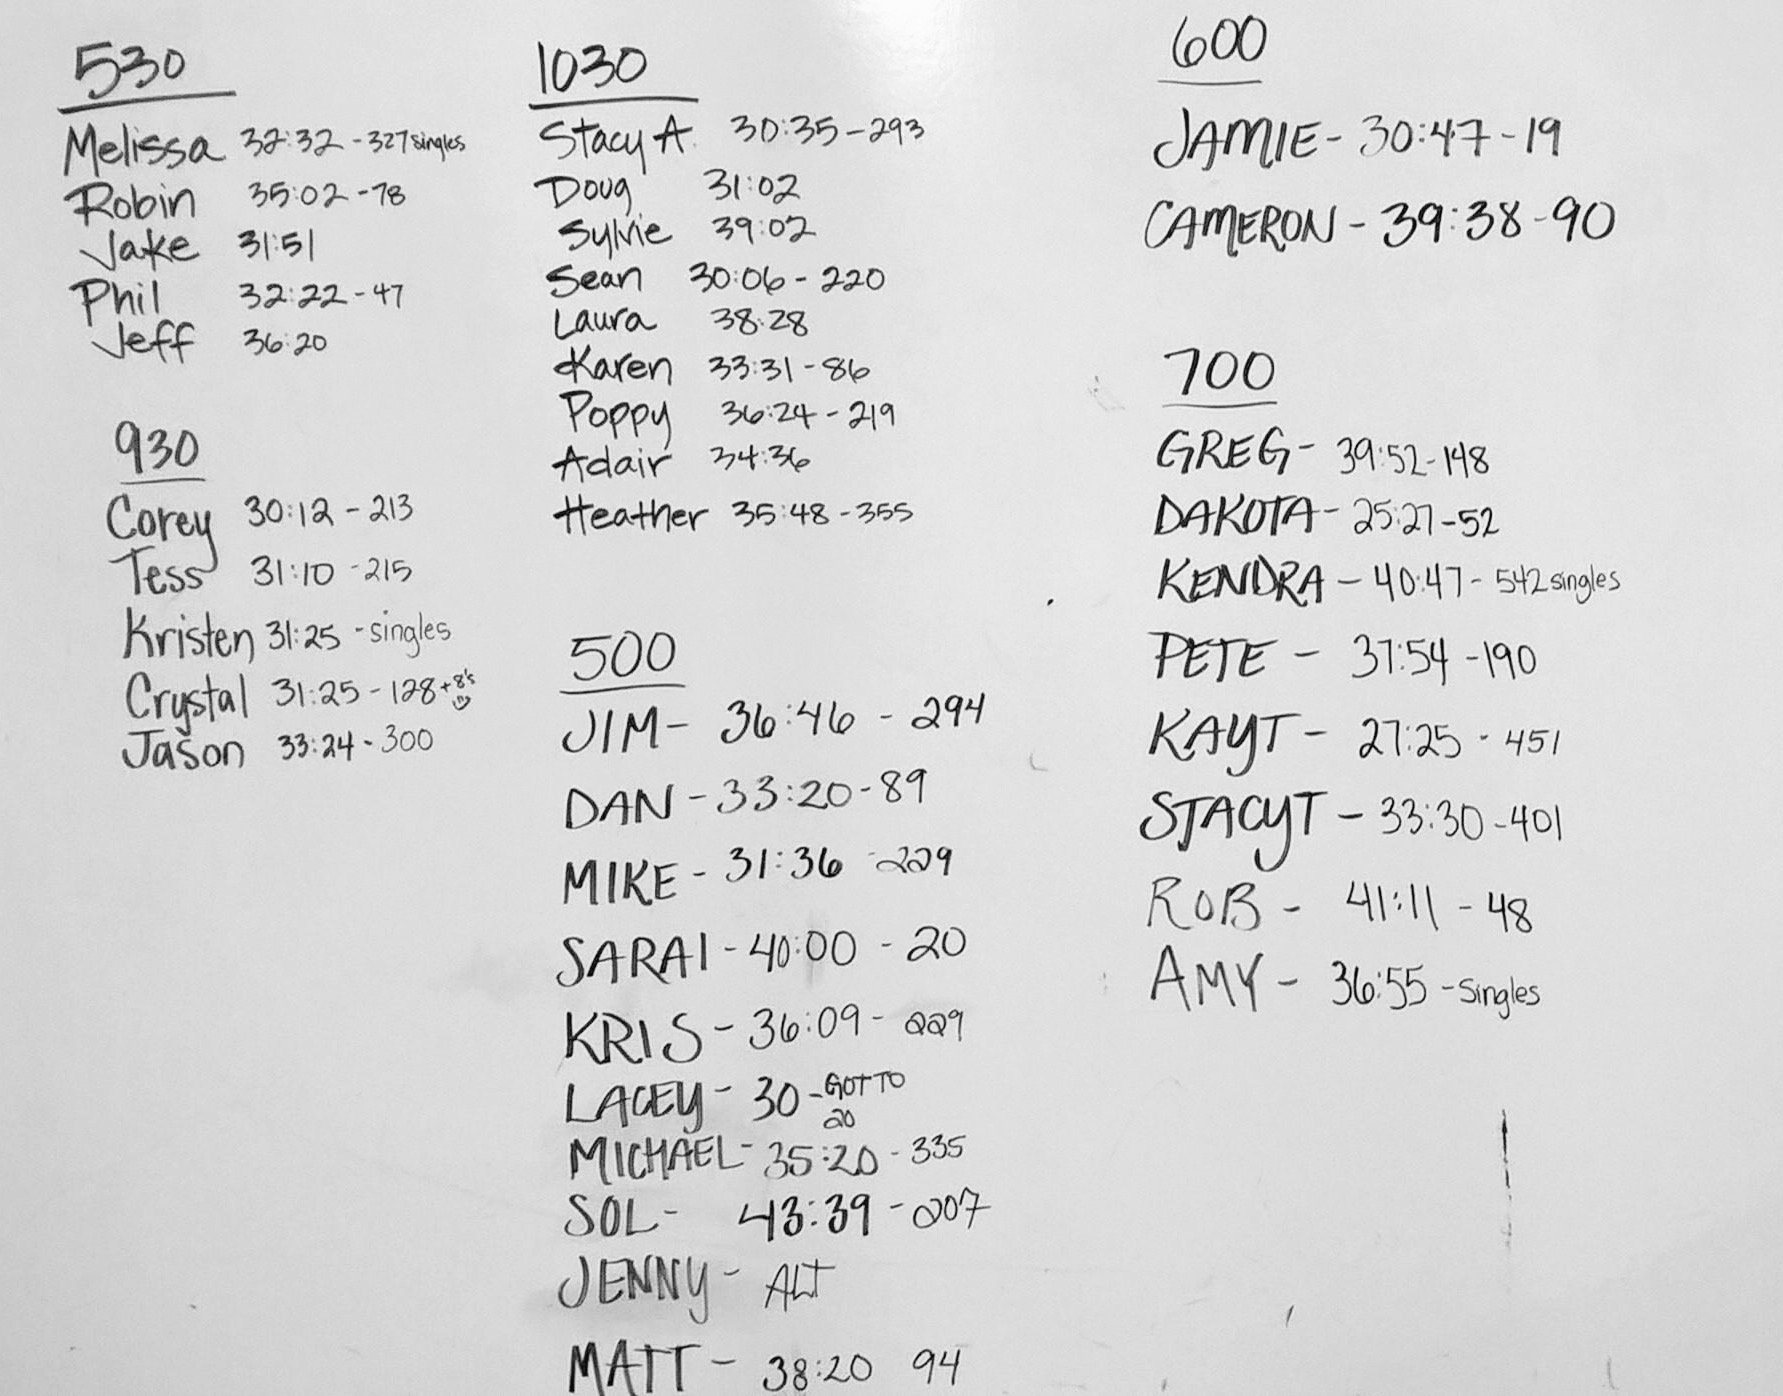 530
Melissa 32:32 - 327 singles
Robin 35:02 - 78
Jake 31:51
Phil 32:22 - 47
Jeff 36:20
930
Corey 30:12 - 213
Tess 31:10 - 215
Kristen 31:25 - singles
Crystal 31:25 - 128 + 8's
Jason 33:24 - 300
1030
Stacy A. 30:35 - 293
Doug 31:02
Sylvie 39:02
Sean 30:06 - 220
Laura 38:28
Karen 33:31 - 86
Poppy 36:24 - 219
Adair 34:36
Heather 35:48 - 355
500
JIM - 36:46 - 294
DAN - 33:20 - 89
MIKE - 31:36 - 229
SARAI - 40:00 - 20
KRIS - 36:09 - 229
LACEY - 30 - GOT TO
20
MICHAEL - 35:20 - 335
SOL - 43:39 - 207
JENNY - ALT
MATT - 38:20 94
600
JAMIE - 30:47 - 19
CAMERON - 39:38 - 90
700
GREG - 39:52 - 148
DAKOTA - 25:27 - 52
KENDRA - 40:47 - 542 singles
PETE - 37:54 - 190
KAYT - 27:25 - 451
STACYT - 33:30 - 401
ROB - 41:11 - 48
AMY - 36:55 - Singles